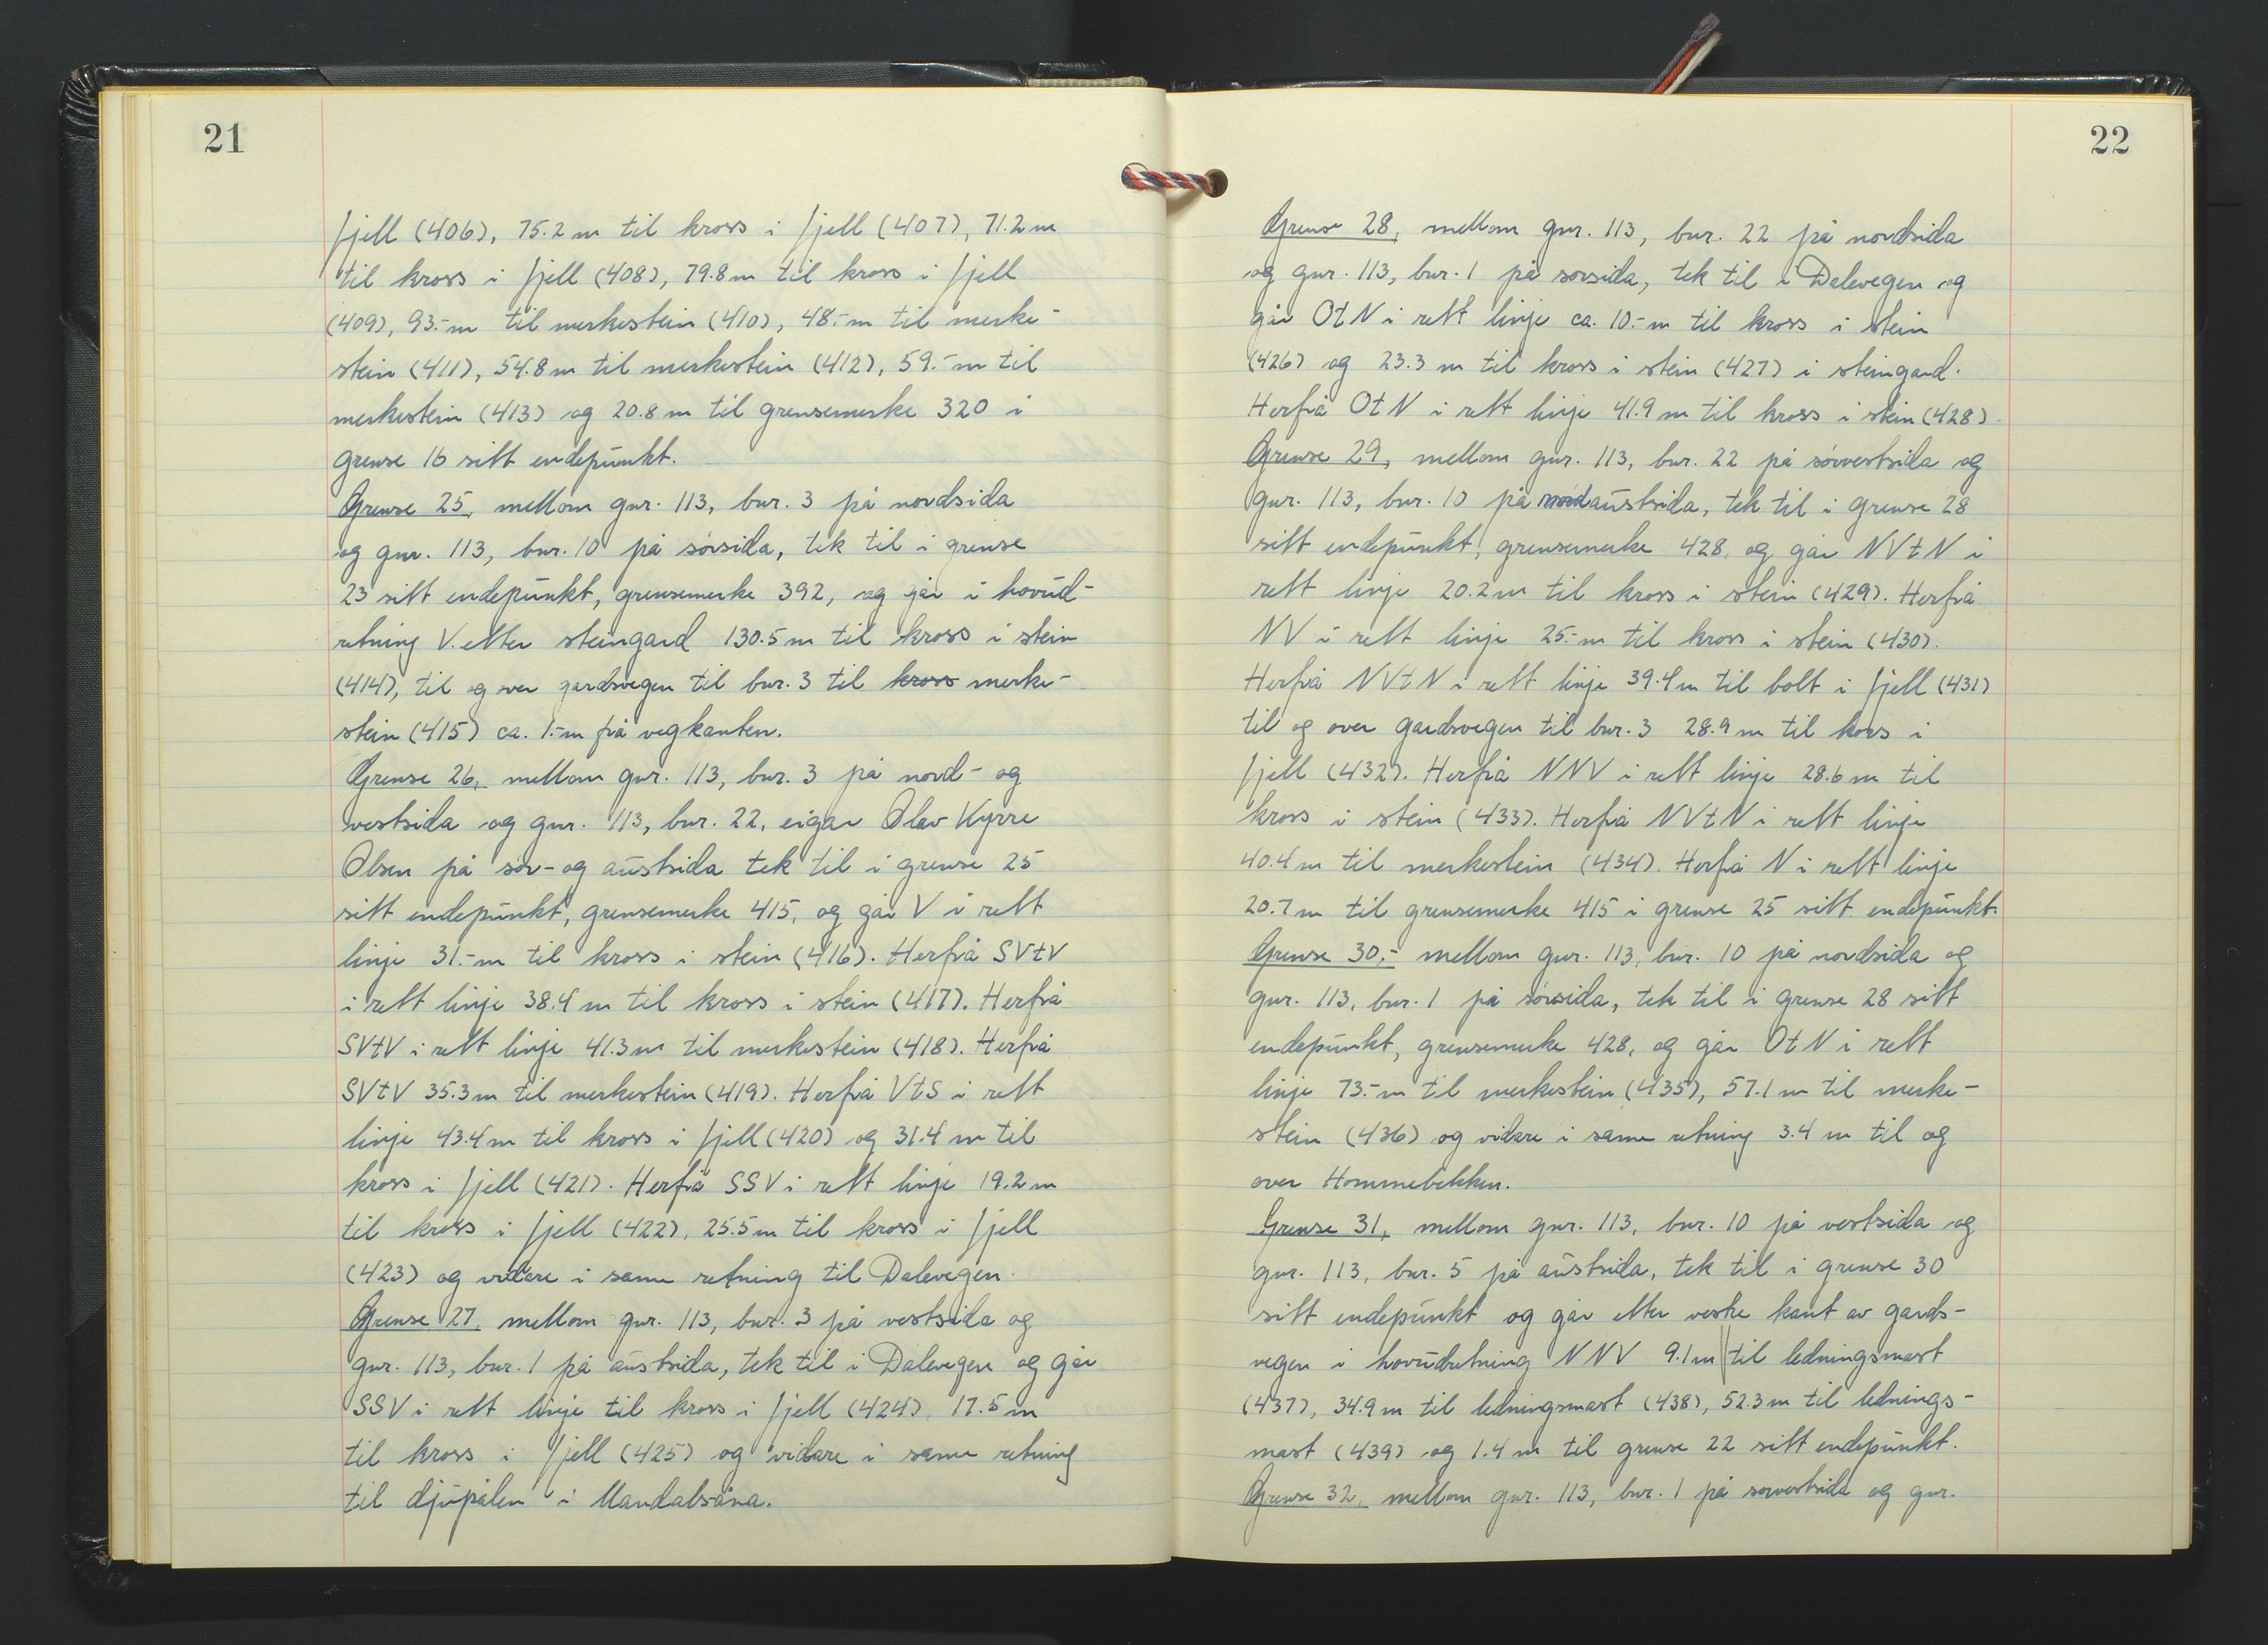 21
fjell (406), 75.2 m til kross i fjell (407), 71.2 m
til kross i fjell (408), 79.8 m til kross i fjell
(409), 93.- m til merkestein (410), 48.- m til merke-
stein (411), 54.8 m til merkestein (412), 59.- m til
merkestein (413) og 20.8 m til grensemerke 320 i
grense 16 sitt endepunkt.
Grense 25, mellom gnr. 113, bnr. 3 på nordsida
og gnr. 113, bnr. 10 på sørsida, tek til i grense
23 sitt endepunkt, grensemerke 392, og går i hovud-
retning V. etter steingard 130.5 m til kross i stein
(414), til og over gardsvegen til bnr. 3 til kross merke-
stein (415) ca. 1.- m frå vegkanten.
Grense 26, mellom gnr. 113, bnr. 3 på nord- og
vestsida og gnr. 113, bnr. 22, eigar Olav Kyrre
Olsen på sør- og austsida tek til i grense 25
sitt endepunkt, grensemerke 415, og går V i rett
linje 31.- m til kross i stein (416). Herfrå SVtV
i rett linje 38.4 m til kross i stein (417). Herfrå
SVtV i rett linje 41.3 m til merkestein (418). Herfrå
SVtV 35.3 m til merkestein (419). Herfrå VtS i rett
linje 43.4 m til kross i fjell (420) og 31.4 m til
kross i fjell (421). Herfrå SSV i rett linje 19.2 m
til kross i fjell (422), 25.5 m til kross i fjell
(423) og vidare i same retning til Dalevegen.
Grense 27, mellom gnr. 113, bnr. 3 på vestsida og
gnr. 113, bnr. 1 på austsida, tek til i Dalevegen og går
SSV i rett linje til kross i fjell (424), 17.5 m
til kross i fjell (425) og vidare i same retning
til djupålen i Mandalsåna.
22
Grense 28, mellom gnr. 113, bnr. 22 på nordsida
og gnr. 113, bnr. 1 på sørsida, tek til i Dalevegen og
går OtN i rett linje ca. 10.- m til kross i stein
(426) og 23.3 m til kross i stein (427) i steingard.
Herfrå OtN i rett linje 41.9 m til kross i stein (428).
Grense 29, mellom gnr. 113, bnr. 22 på sørvestsida og
gnr. 113, bnr. 10 på nordaustsida, tek til i grense 28
sitt endepunkt, grensemerke 428, og går NVtN i
rett linje 20.2 m til kross i stein (429). Herfrå
NV i rett linje 25.- m til kross i stein (430).
Herfrå NVtN i rett linje 39.4 m til bolt i fjell (431)
til og over gardsvegen til bnr. 3 28.9 m til kors i
fjell (432). Herfrå NNV i rett linje 28.6 m til
kross i stein (433). Herfrå NVtN i rett linje
40.4 m til merkestein (434). Herfrå N i rett linje
20.7 m til grensemerke 415 i grense 25 sitt endepunkt.
Grense 30.- mellom gnr. 113, bnr. 10 på nordsida og
gnr. 113, bnr. 1 på sørsida, tek til i grense 28 sitt
endepunkt, grensemerke 428, og går OtN i rett
linje 73.- m til merkestein (435), 57.1 m til merke-
stein (436) og vidare i same retning 3.4 m til og
over Hommebekken.
Grense 31, mellom gnr. 113, bnr. 10 på vestsida og
gnr. 113, bnr. 5 på austsida, tek til i grense 30
sitt endepunkt og går etter vestre kant av gards-
vegen i hovudretning NNV 9.1 m til ledningsmast
(437), 34.9 m til ledningsmast (438), 52.3 m til lednings-
mast (439) og 1.4 m til grense 22 sitt endepunkt.
Grense 32, mellom gnr. 113, bnr. 1 på sørvestsida og gnr.